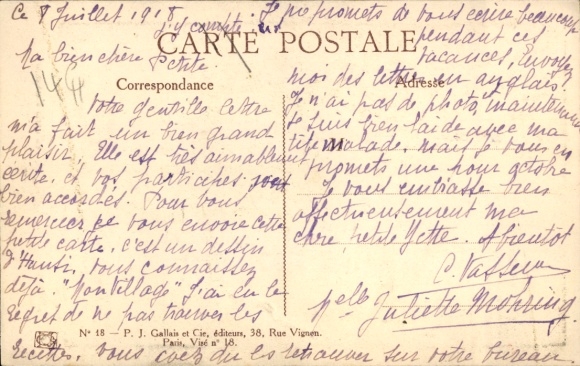 Ce 8 Juillet 1918
CARTE POSTALE
Correspondance
Ma bien chère Petite
Votre gentille lettre
m'a fait un bien grand
plaisir. Elle est très aimablement
écrite, et vos participes sont
bien accordés. Pour vous
remercier je vous envoie cette
petite carte, c'est un dessin
d'Hansi, vous connaissez
déjà "Mon Village" J'ai eu le
regret de ne pas trouver les
recettes, vous avez dû les retrouver sur votre bureau
Adresse
Je me promets de vous écrire beaucoup
pendant ces
vacances, Envoyez
j'y compte
moi des lettres en anglais.
Je n'ai pas de photo, maintenant
je suis bien laide avec ma
tête malade. mais je vous en
promets une pour octobre
Je vous embrasse bien
affectueusement ma
chère petite Yette. A bientôt
C. Vasseur
Melle Juliette Mohring
144
No 18 — P. J. Gallais et Cie, éditeurs, 38, Rue Vignon.
Paris, Visé no 18.